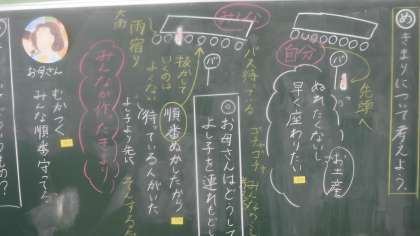 め きまりについて考えよう。
先頭へ
自分
バ
お土産
ぬれたくないし、
早く座りたい
バス待っている
ゴチャゴチャ
◎お母さんはどうして
よし子を連れもど
みんな
バ
抜かして
いくのは
よくない
順番ぬかしたから
待っている人がいた
よし子より先に
雨宿り
大雨
みんなが作ったきまり
お母さん
むかつく
みんな順番守ってる